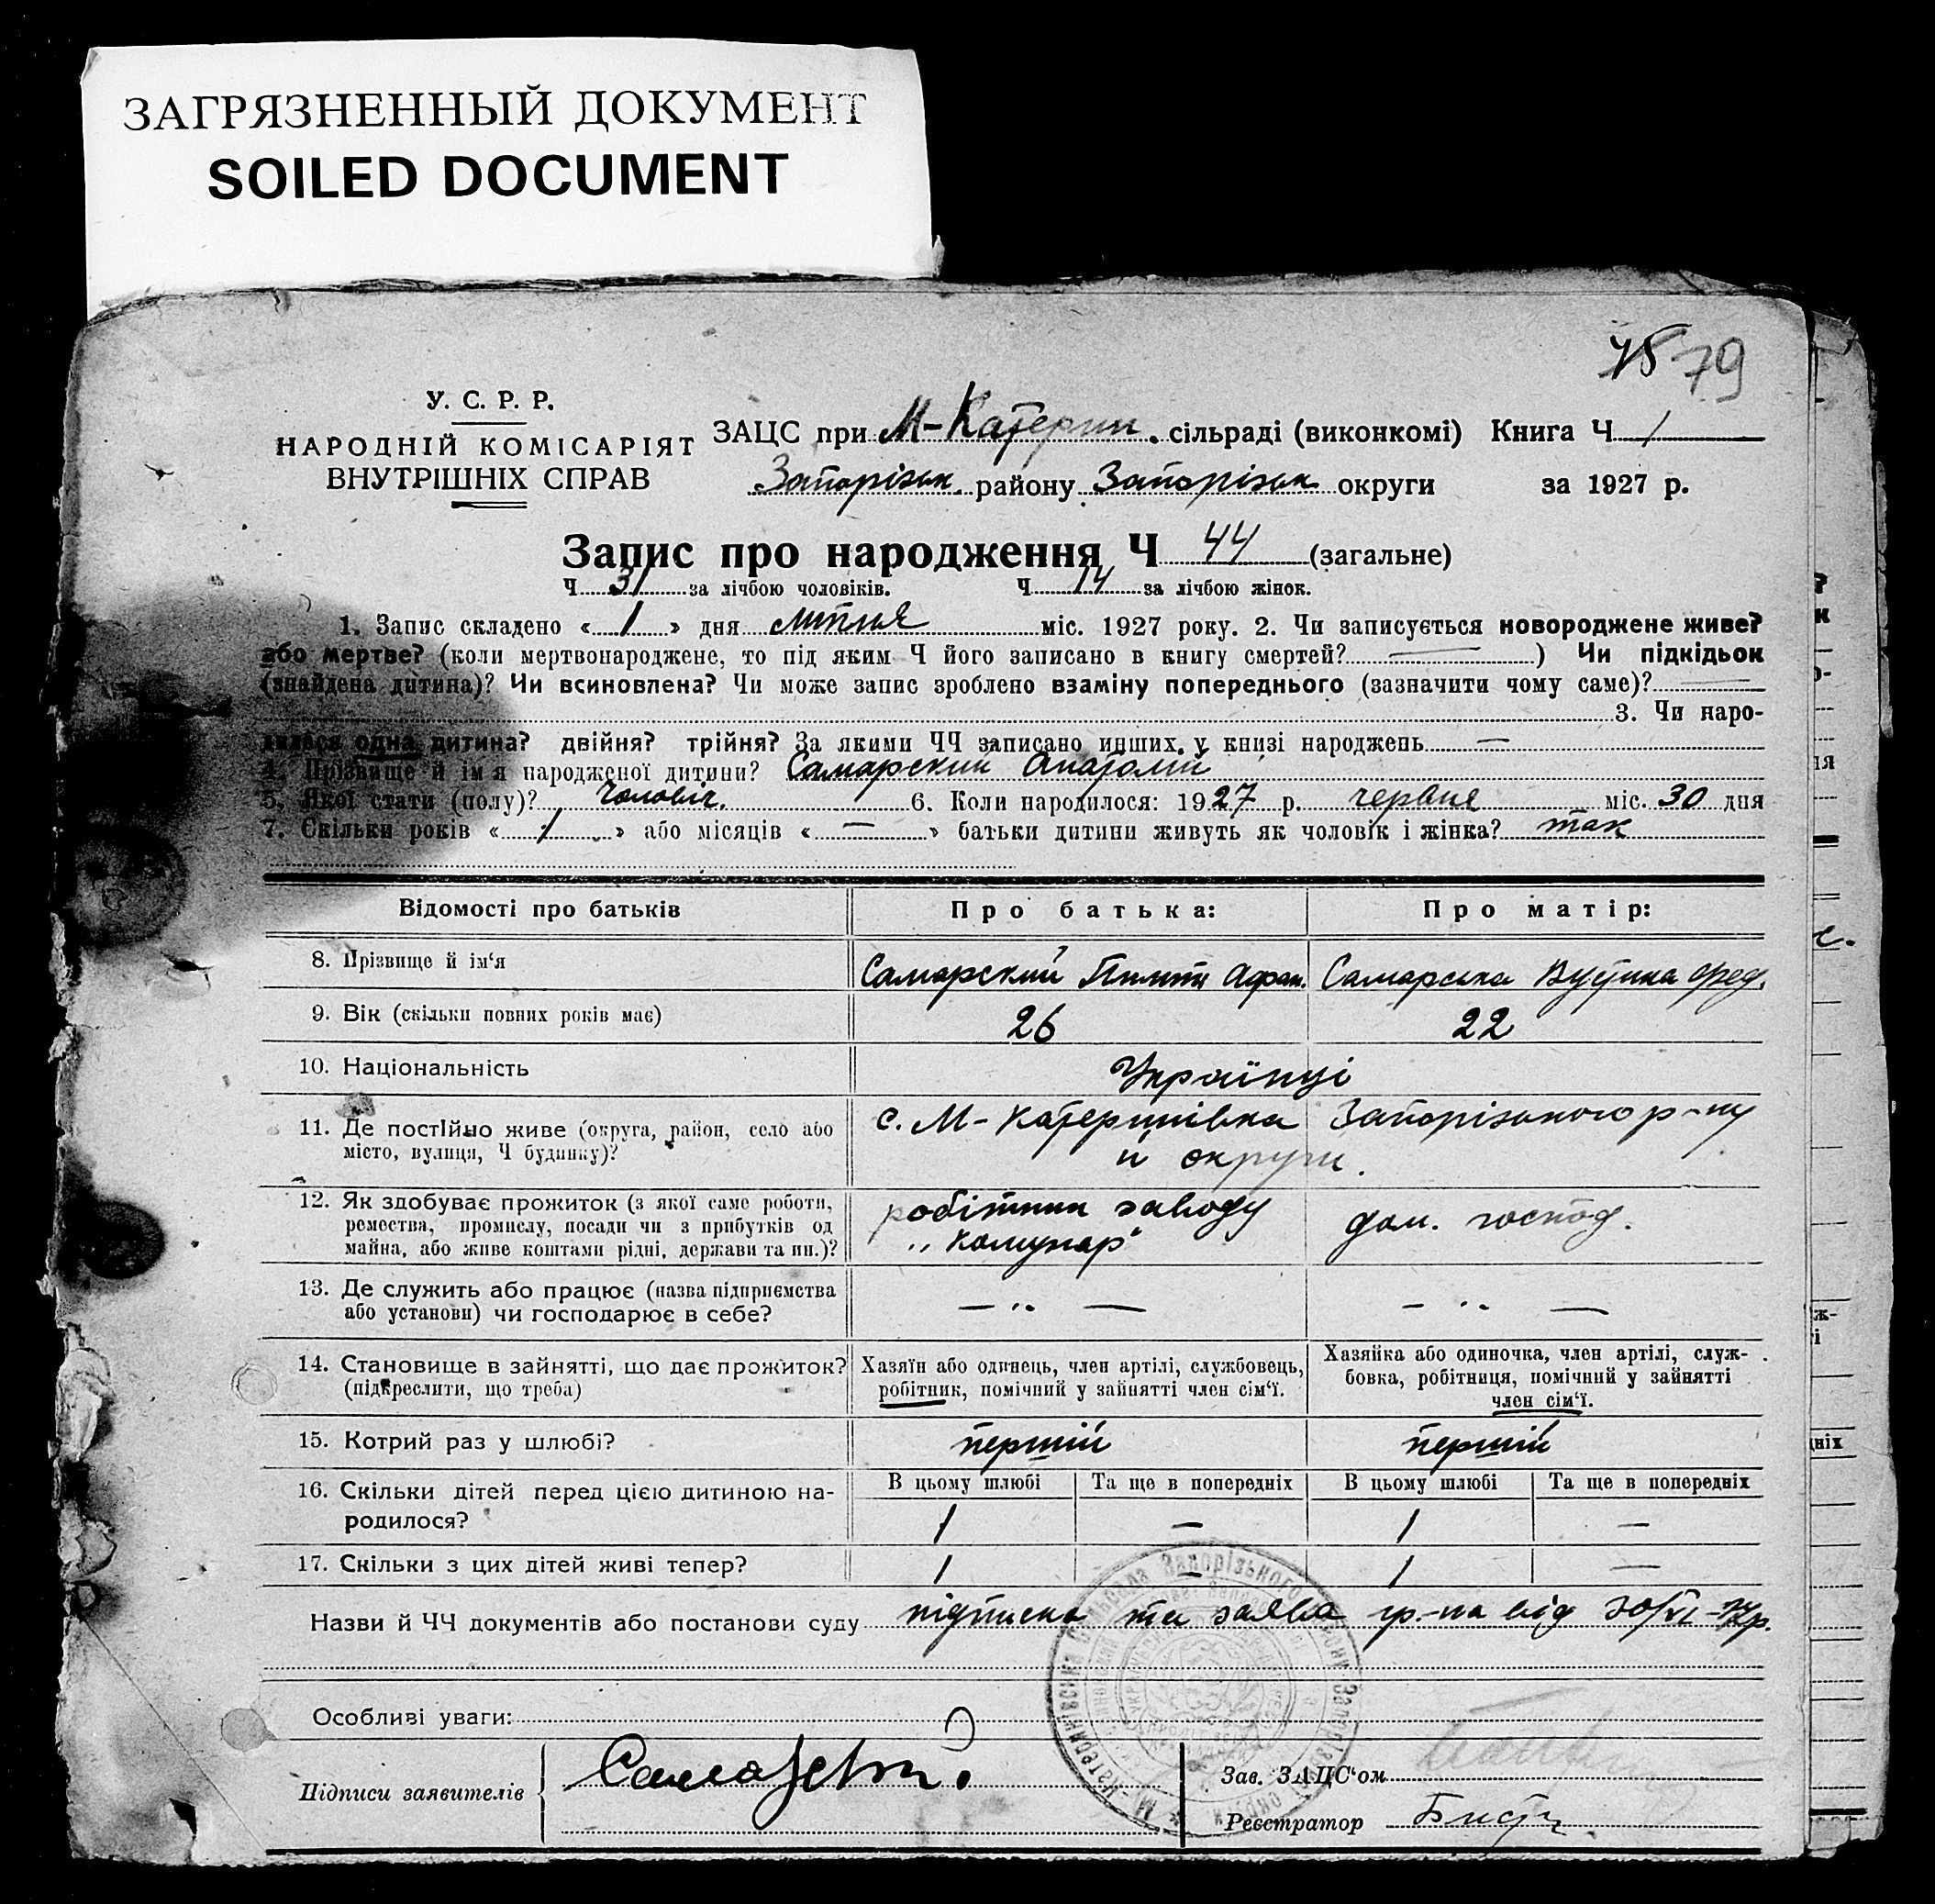 ЗАГРЯЗНЕННЫЙ ДОКУМЕНТ
SOILED DOCUMENT
79
У. С. Р. Р.
НАРОДНІЙ КОМІСАРІЯТ
ВНУТРІШНІХ СПРАВ
ЗАЦС при М-Катерин. сільраді (виконкомі) Книга Ч 1
Запорізьк. району Запорізьк округи за 1927 р.
Запис про народження Ч 44 (загальне)
Ч 31 за лічбою чоловіків. Ч 14 за лічбою жінок.
1. Запис складено « 1 » дня липня міс. 1927 року. 2. Чи записується новороджене живе?
або мертве? (коли мертвонароджене, то під яким Ч його записано в книгу смертей? — ) Чи підкідьок
(знайдена дитина)? Чи всиновлена? Чи може запис зроблено взаміну попереднього (зазначити чому саме)? —
3. Чи наро-
дилася одна дитина? двійня? трійня? За якими ЧЧ записано инших у книзі народжень —
4. Прізвище й ім'я народженої дитини? Самарский Анатолий
5. Якої стати (полу)? Чоловіч. 6. Коли народилося: 1927 р. червня міс. 30 дня
7. Скільки років « 1 » або місяців « — » батьки дитини живуть як чоловік і жінка? так
Відомості про батьків Про батька: Про матір:
8. Прізвище й ім'я Самарский Пилип Афан. Самарська Вустина Фед.
9. Вік (скільки повних років має) 26 22
10. Національність Українці
11. Де постійно живе (округа, район, село або
місто, вулиця, Ч будинку)? с. М-Катеринівка Запорізького р-ну
й округи.
12. Як здобуває прожиток (з якої саме роботи,
ремества, промислу, посади чи з прибутків од
майна, або живе коштами рідні, держави та ин.)? робітник заводу
„Комунар" дом. господ.
13. Де служить або працює (назва підприємства
або установи) чи господарює в себе? — „ — — „ —
14. Становище в зайнятті, що дає прожиток?
(підкреслити, що треба)
Хазяїн або одинець, член артілі, службовець,
робітник, помічний у зайнятті член сім'ї.
Хазяйка або одиночка, член артілі, служ-
бовка, робітниця, помічний у зайнятті
член сім'ї.
15. Котрий раз у шлюбі? перший перший
16. Скільки дітей перед цією дитиною на-
родилося?
В цьому шлюбі Та ще в попередніх В цьому шлюбі Та ще в попередніх
1 — 1 —
17. Скільки з цих дітей живі тепер? 1 — 1 —
Назви й ЧЧ документів або постанови суду підписка та заява гр-на від 30/VI-27р.
Особливі уваги:
Підписи заявителів
Зав. ЗАЦС'ом
Реєстратор